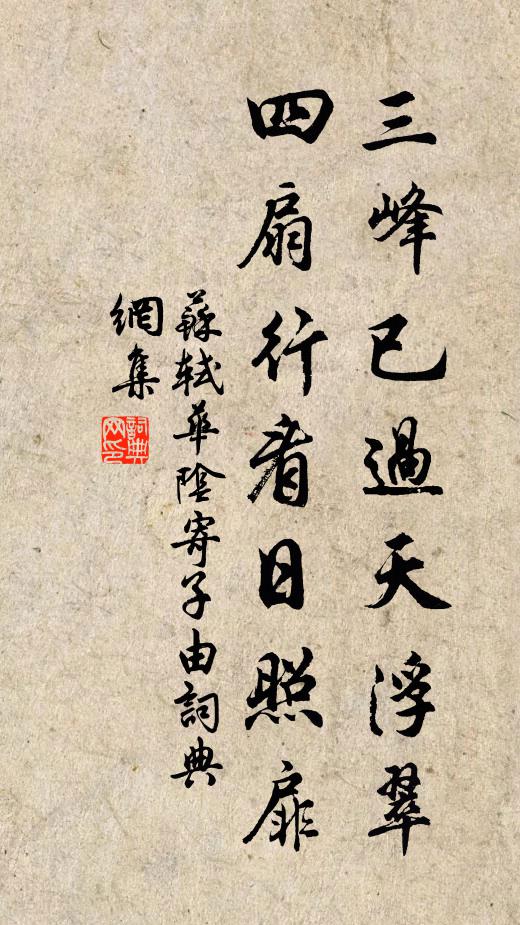 三峰已過天浮翠
四扇行看日照扉
蘇軾華陰寄子由詞典
網集
詞典網印